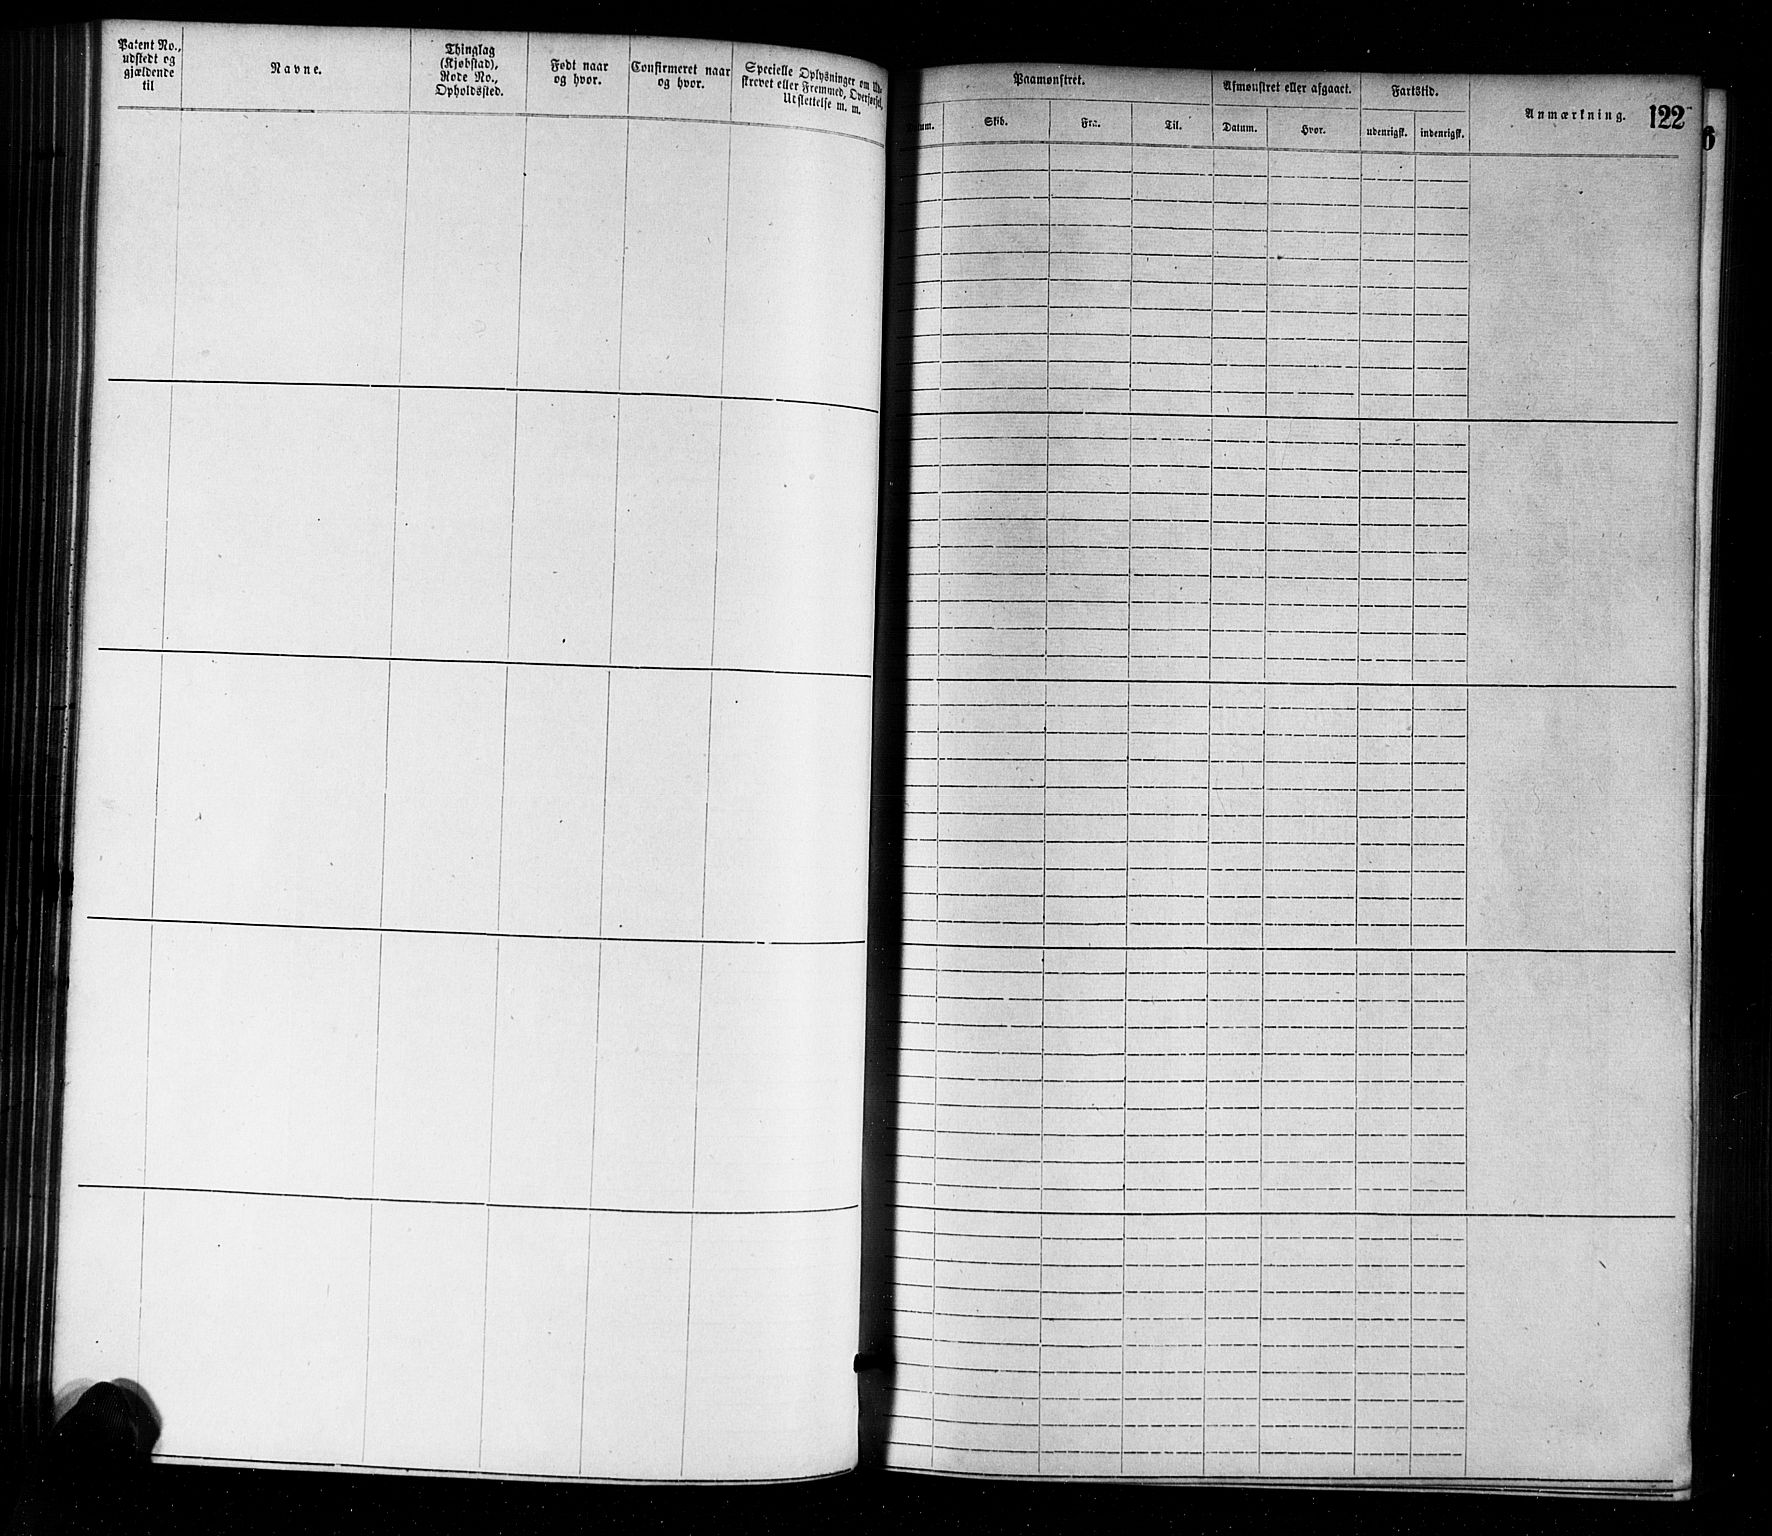 Patent No.,
udstedt og
gjældende
til
Navne.
Thinglag
(Kjøbstad),
Rode No.,
Opholdssted.
Født naar
og hvor.
Confirmeret naar
og hvor.
Specielle Oplysninger om Ud-
skrevet eller Fremmed, Overførsel,
Udslettelse m. m.
Paamønstret.
Skib.
Fra.
Til.
Afmønstret eller afgaaet.
Datum.
Hvor.
Fartstid.
udenrigsk.
indenrigsk.
Anmærkning.
122